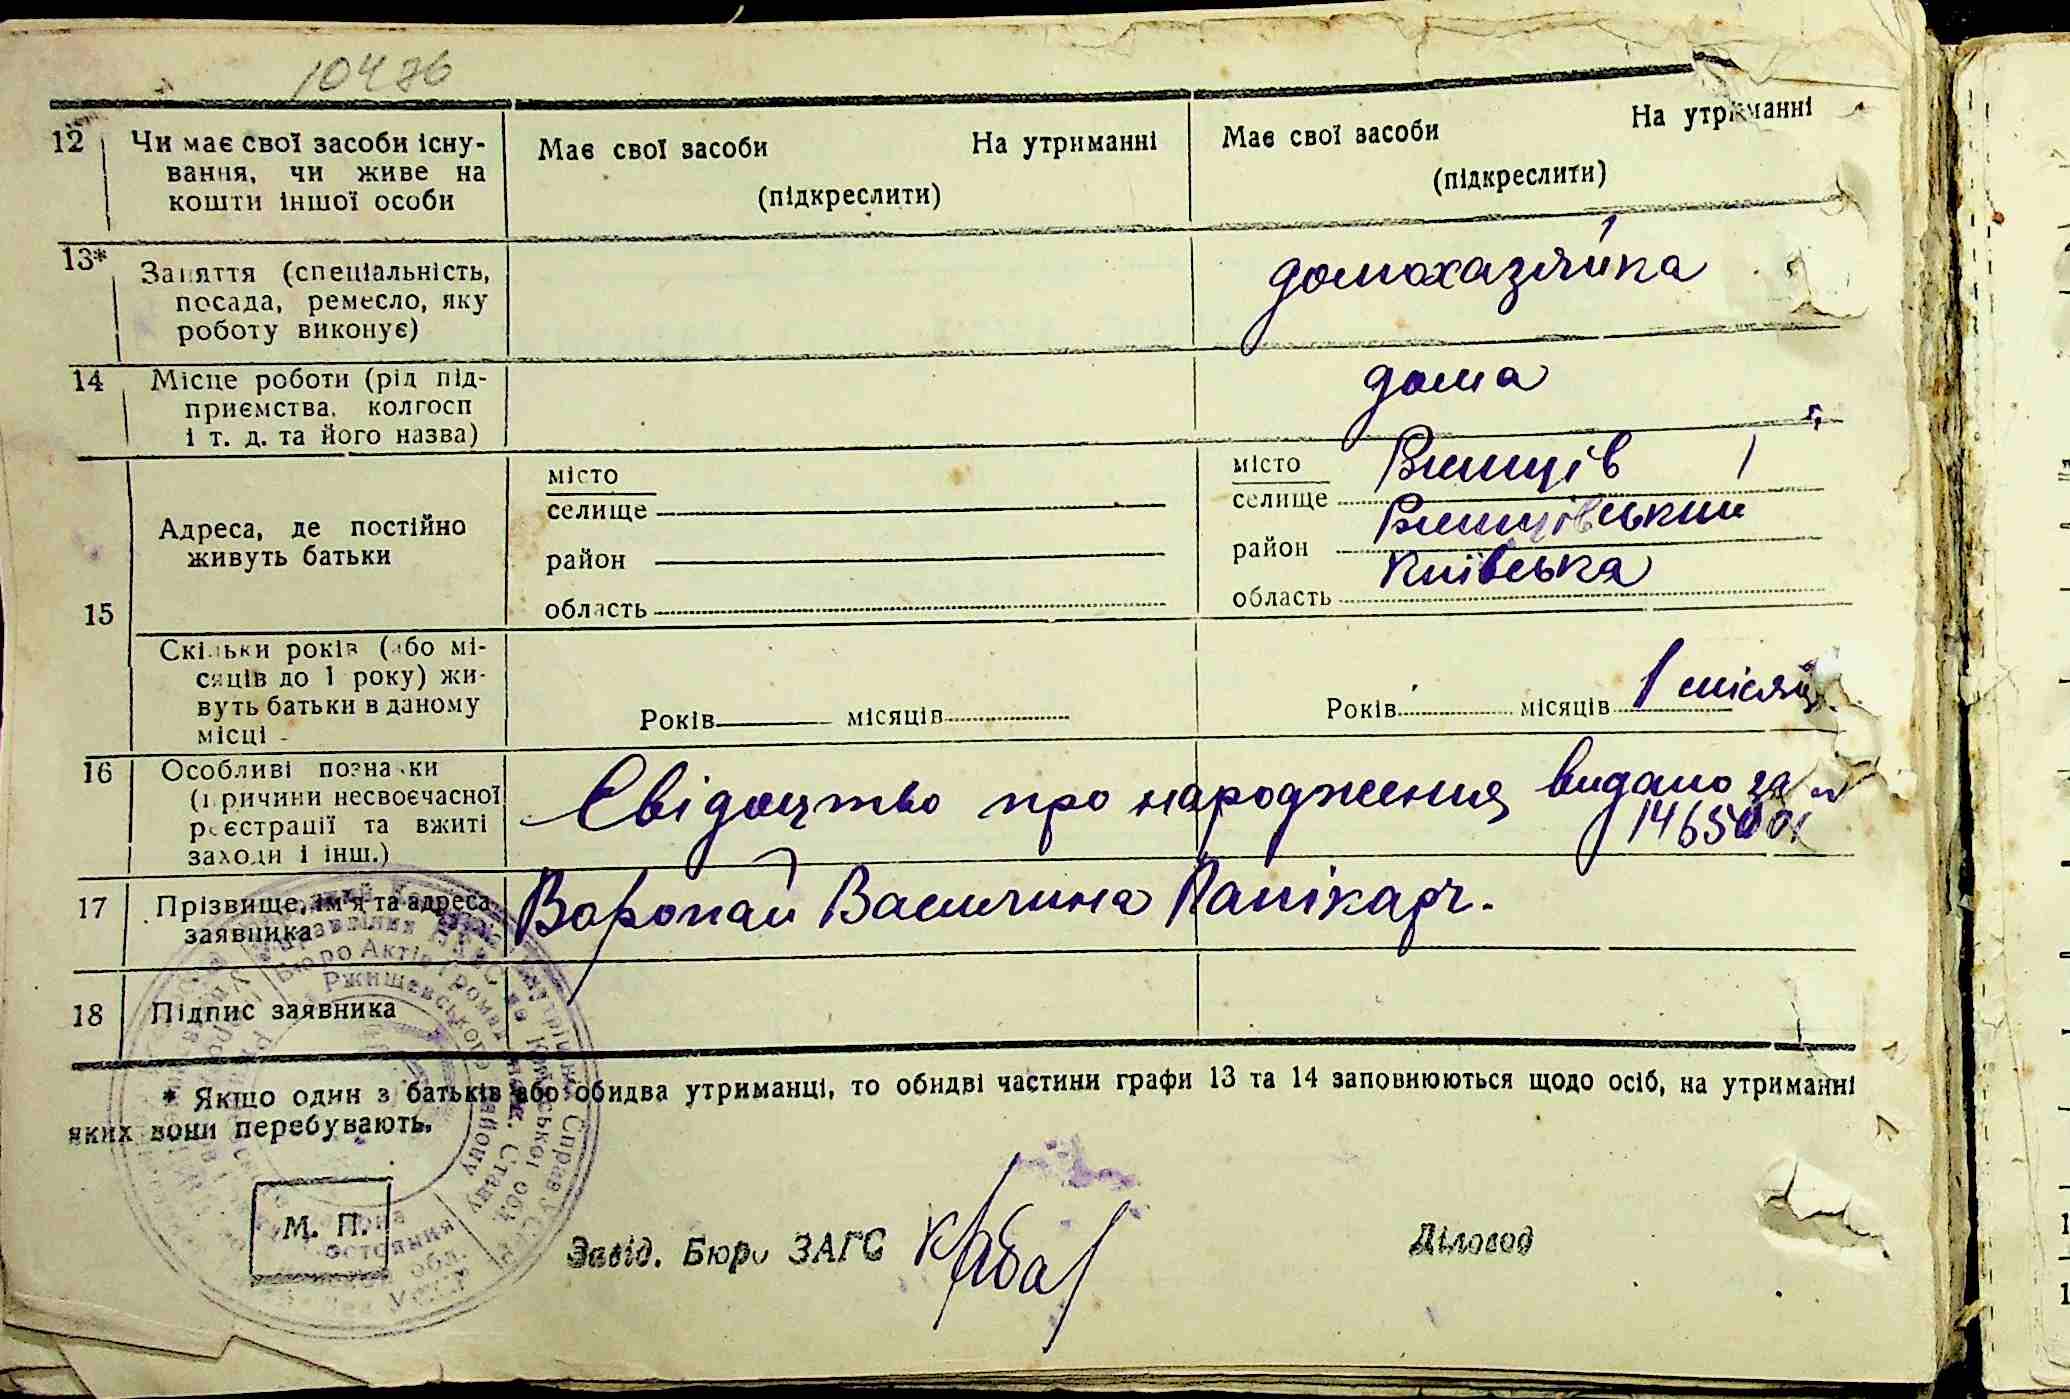 10476
12 Чи має свої засоби існу-
вання, чи живе на
кошти іншої особи
Має свої засоби На утриманні
(підкреслити)
Має свої засоби На утриманні
(підкреслити)
13* Заняття (спеціальність,
посада, ремесло, яку
роботу виконує)
домохазяйка
14 Місце роботи (рід під-
приємства, колгосп
і т. д. та його назва)
дома
15
Адреса, де постійно
живуть батьки
місто
селище
район
область
місто
селище
район
область Київська
Скільки років (або мі-
сяців до 1 року) жи-
вуть батьки в даному
місці
Років місяців
Років місяців 1 місяць
16 Особливі позначки
(причини несвоєчасної
реєстрації та вжиті
заходи і інш.)
Свідоцтво про народження видано за
17 Прізвище, ім'я та адреса
заявника
Воропай
18 Підпис заявника
* Якщо один з батьків або обидва утриманці, то обидві частини графи 13 та 14 заповнюються щодо осіб, на утриманні
яких вони перебувають.
М. П.
Завід. Бюро ЗАГС
Діловод